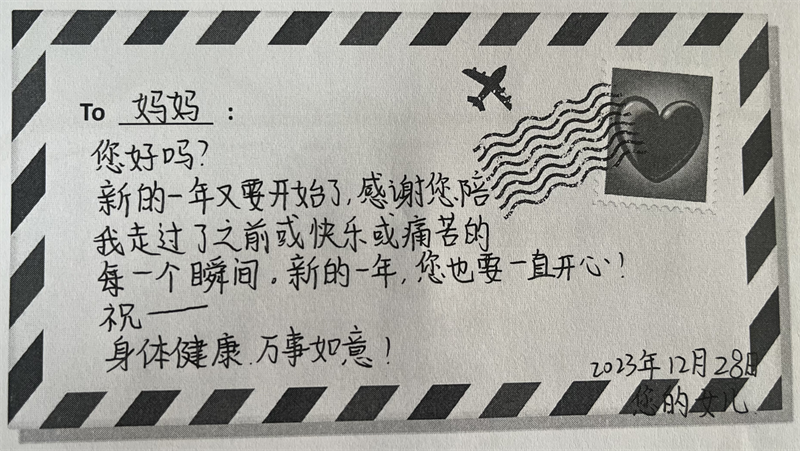 To 妈妈：
您好吗？
新的一年又要开始了，感谢您陪
我走过了之前或快乐或痛苦的
每一个瞬间。新的一年，您也要一直开心！
祝——
身体健康、万事如意！
2023年12月28日
您的女儿